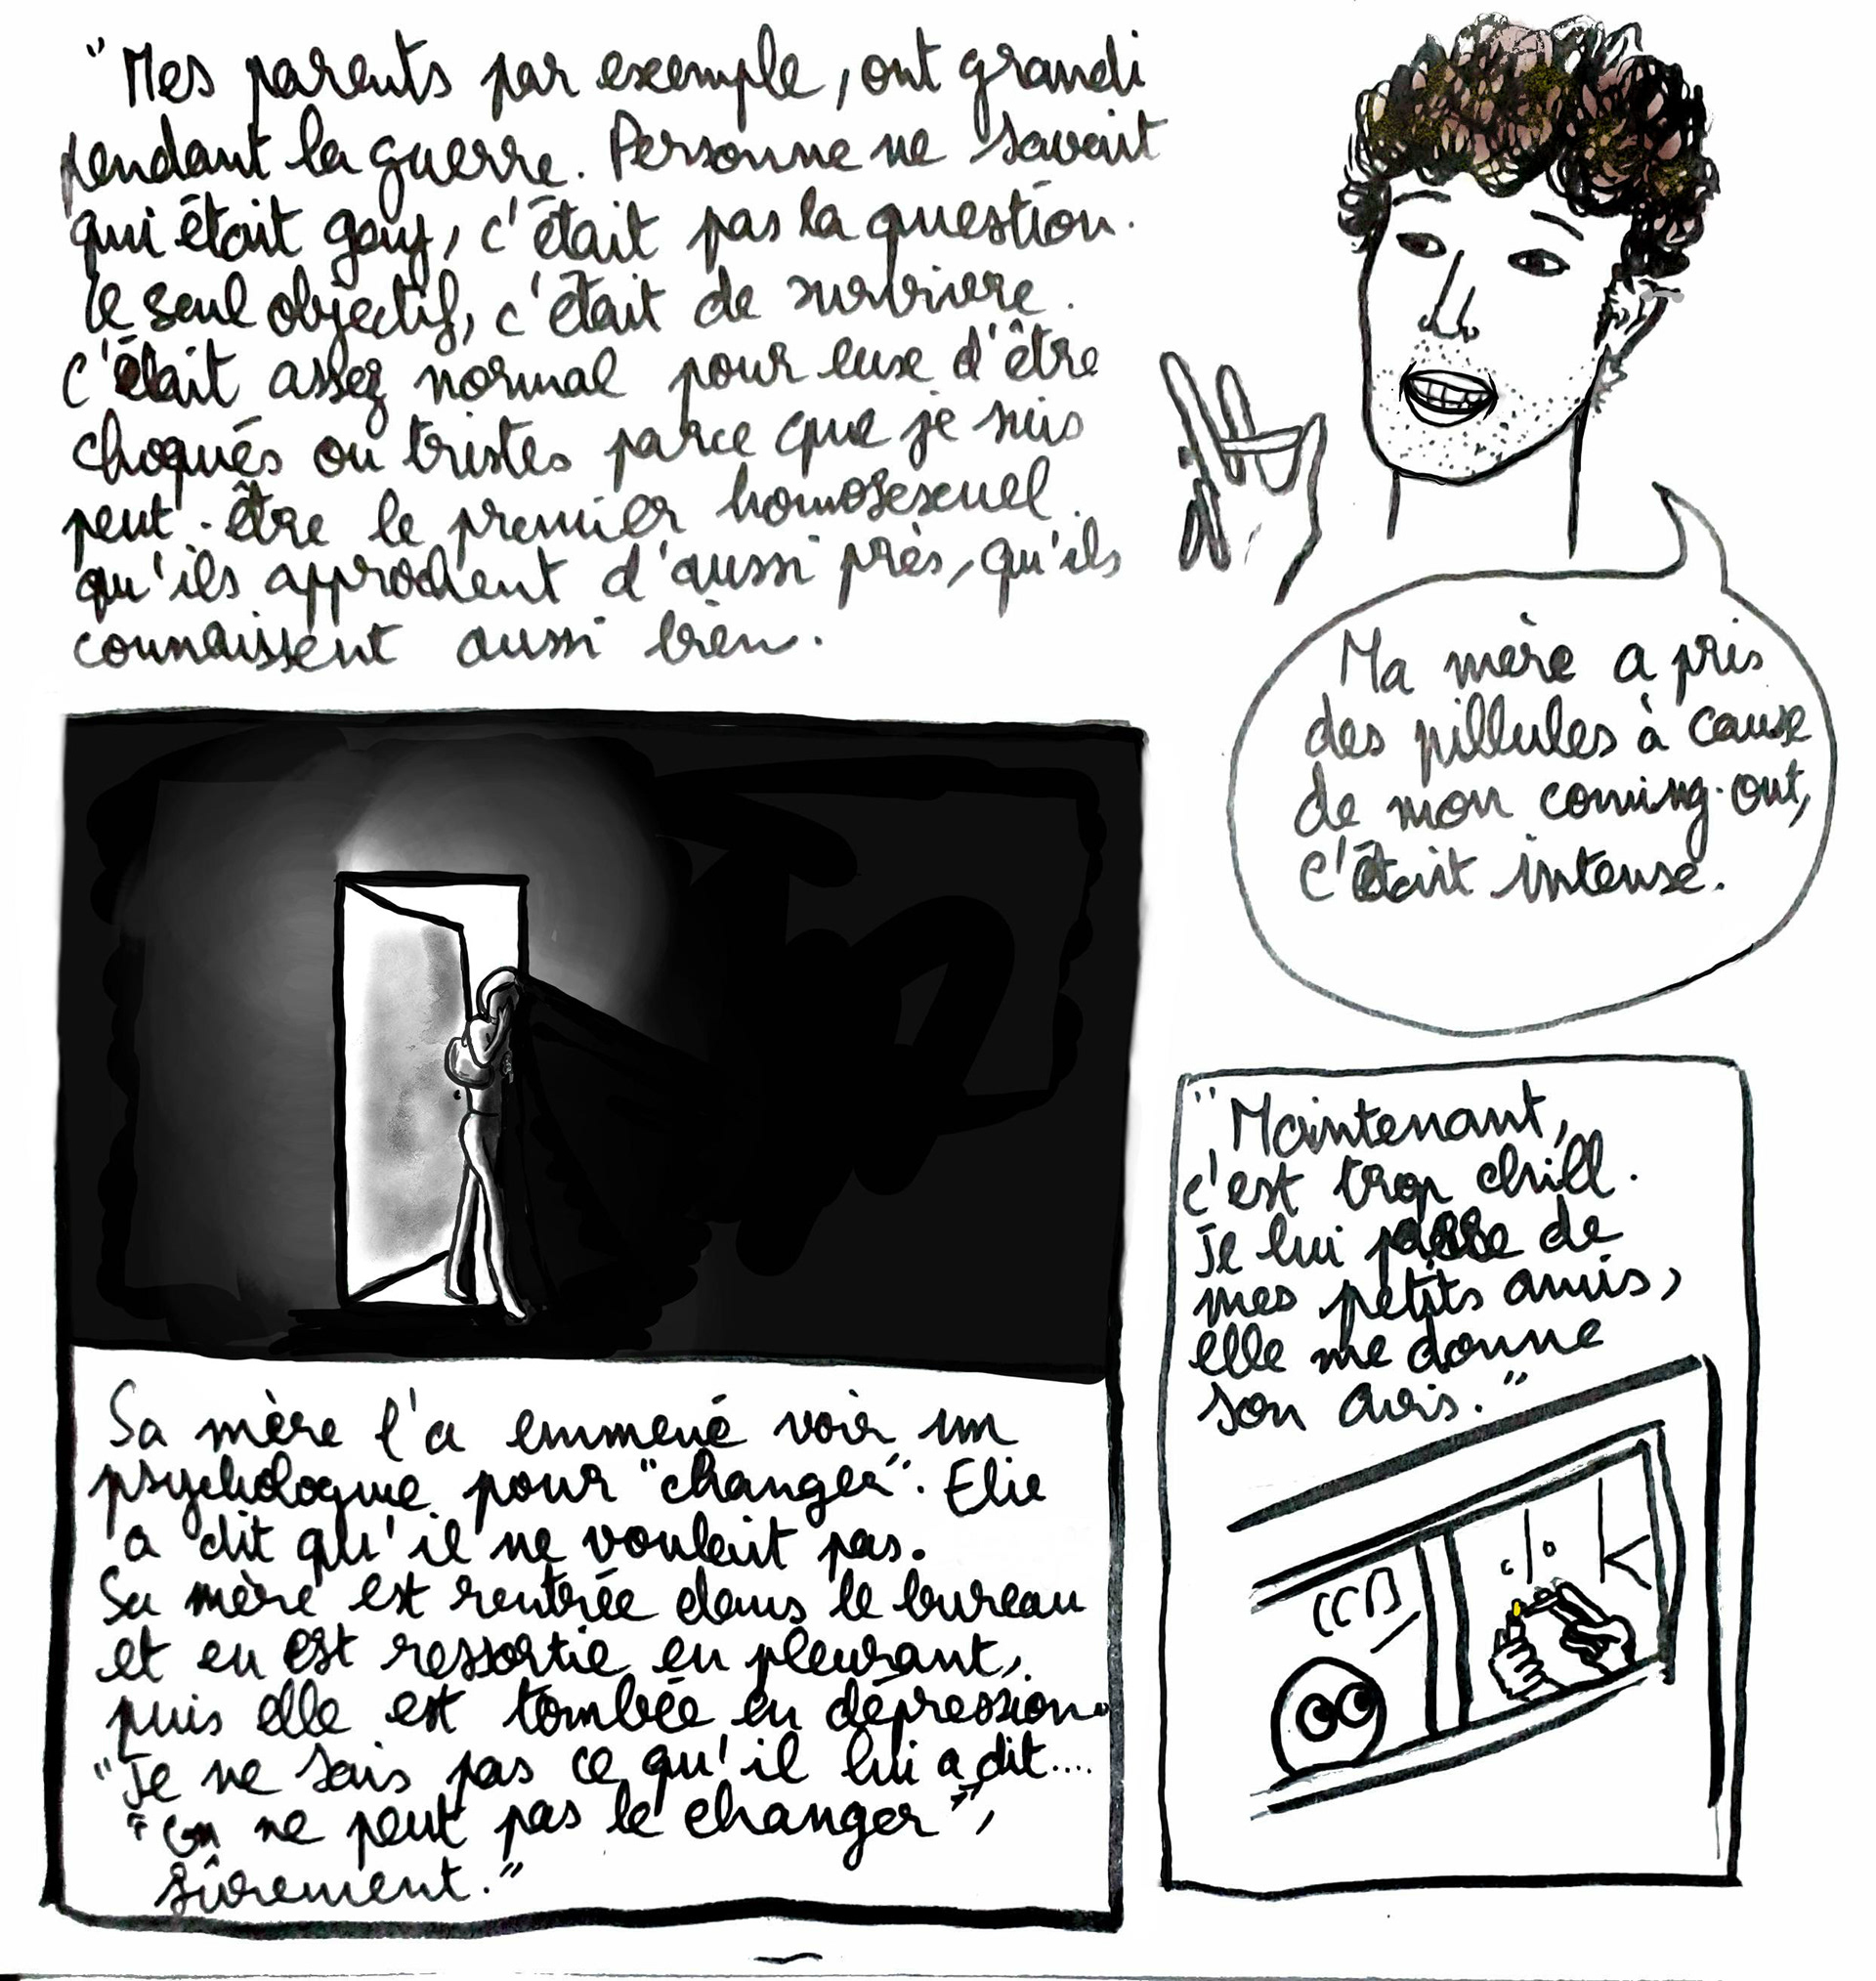 "Mes parents par exemple, ont grandi
pendant la guerre. Personne ne savait
qui était gay, c'était pas la question.
le seul objectif, c'était de survivre.
c'était assez normal pour eux d'être
choqués ou tristes parce que je suis
peut-être le premier homosexuel
qu'ils approchent d'aussi près, qu'ils
connaissent aussi bien.
Ma mère a pris
des pillules à cause
de mon coming-out,
c'était intense.
Sa mère l'a emmené voir un
psychologue pour "changer". Elie
a dit qu'il ne voulait pas.
Sa mère est rentrée dans le bureau
et en est ressortie en pleurant,
puis elle est tombée en dépression.
"Je ne sais pas ce qu'il lui a dit....
"on ne peut pas le changer",
sûrement."
"Maintenant,
c'est trop chill.
Je lui passe de
mes petits amis,
elle me donne
son avis."